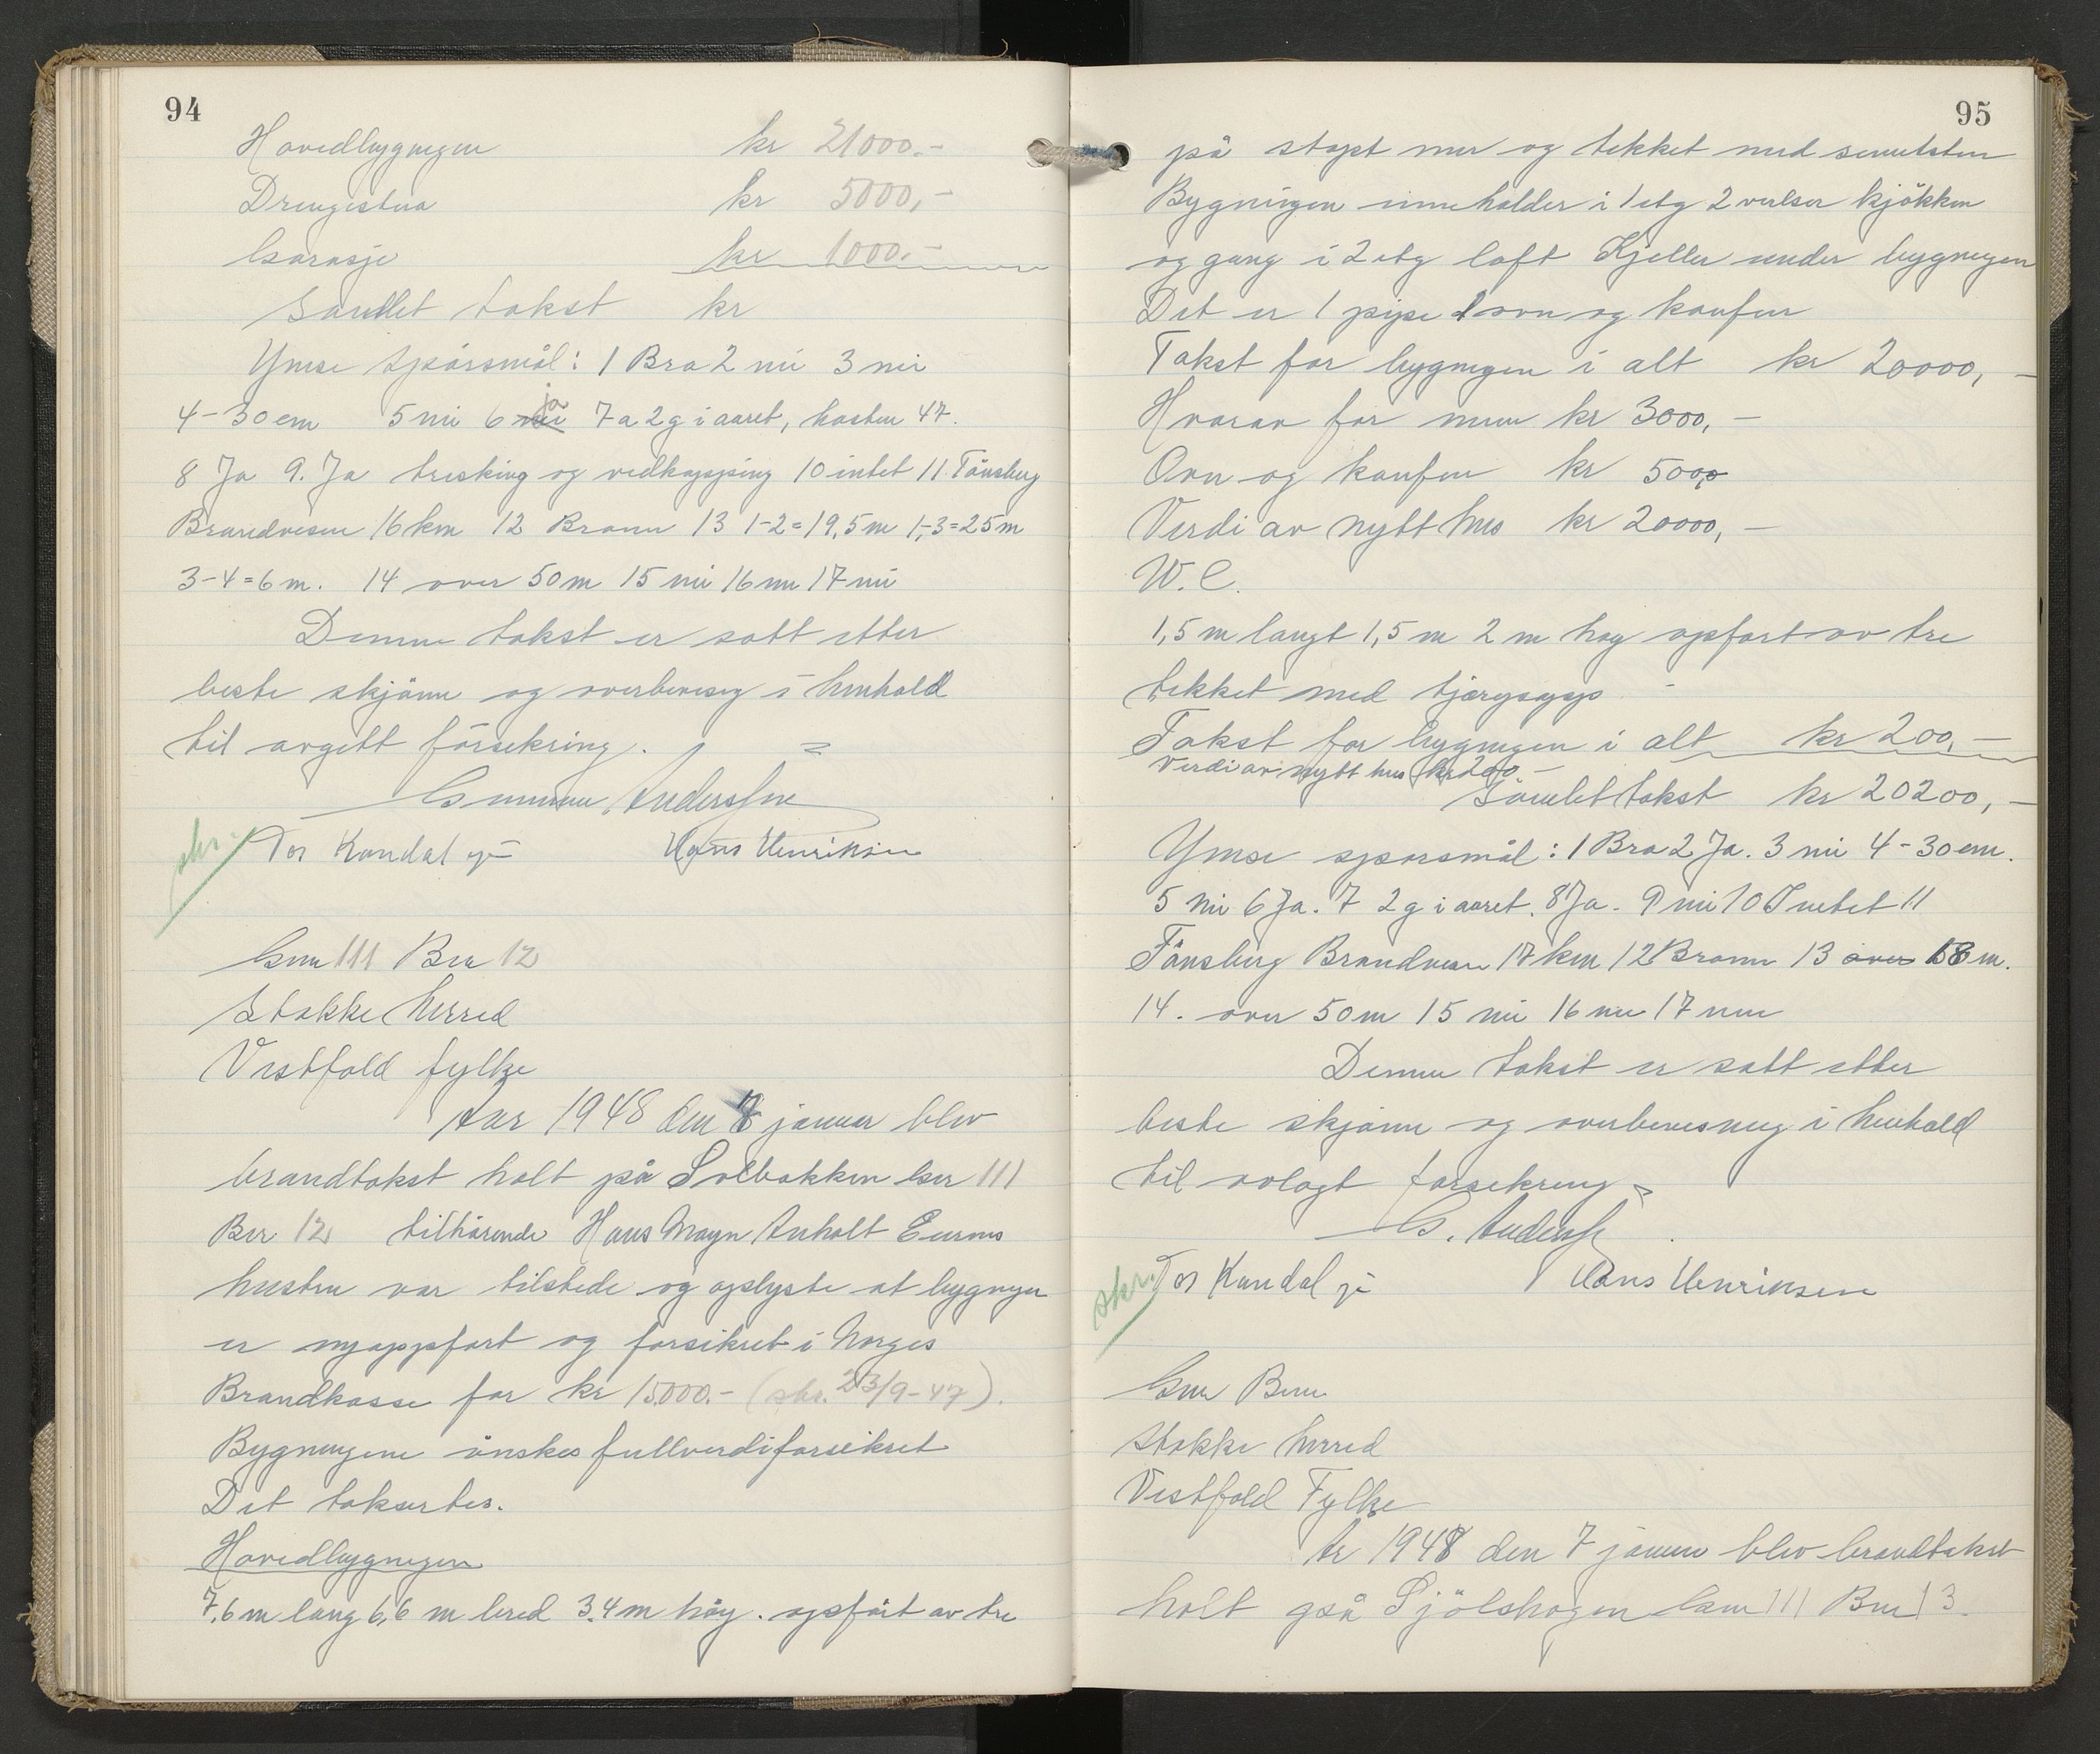 94
Hovedbygnigen kr 21000.-
Drengestua kr 5000,-
Garasje kr 1000.-
Samlet takst kr
Ymse spörsmål: 1 Bra 2 nei 3 nei
4-30 cm 5 nei 6 nei ja 7 a 2 g i aaret, hösten 47.
8 Ja 9. Ja tresking og vedkapping 10 intet 11. Tönsberg
Brandvesen 16 km 12 Brönn 13 1-2=19,5 m 1-3=25 m
3-4=6 m. 14 over 50 m 15 nei 16 nei 17 nei
Denne takst er satt etter
beste skjönn og overbevisng i henhold
til avgitt försekring.
Gunnar Anderssen
skr. Tor Kandal Hans Henriksen
Gnr 111 Bnr 12
Stokke Herred
Vestfold fylke
Aar 1948 den 7 januar blev
brandtakst holt på Solbakken Gnr 111
Bnr 12 tilhörende Hans Magn Anholt
hustru var tilstede og oplyste at bygngen
er nyoppfört og forsikret i Norges
Brandkasse for kr 15000.- (skr. 23/9-47).
Bygningene önskes fullverdiforsikret
Det taksertes.
Hovedbygnigen
7,6 m lang 6,6 m bred 3,4 m höy. opfört av tre
95
på stöpt mur og tekket med sementsten
Bygningen inneholder i 1 etg 2 verlser kjökken
og gang i 2 etg loft Kjeller under bygnigen
Det er 1 pipe 1 ovn og komfur
Takst for bygnigen i alt kr 20000,-
Hvorav for muren kr 3000,-
Ovn og komfur kr 500,
Verdi av nytt hus kr 20000,-
W.C.
1,5 m langt 1,5 m 2 m höy opfört av tre
tekket med tjærepapp
Takst for bygnigen i alt kr 200,-
Verdi av nytt hus kr 200.-
Samlet takst kr 20200,-
Ymse spörsmål: 1 Bra 2 Ja. 3 nei 4-30 cm.
5 nei 6 Ja. 7 2 g i aaret. 8 Ja. 9 nei 10 Intet 11
Tönsberg Brandvesen 17 km 12 Brönn 13 over 18 m.
14. over 50 m 15 nei 16 nei 17 nei
Denne takst er satt etter
beste skjönn og overbevisnig i henhold
til avlagt forsekring
G. Anderssen
skr. Tor Kandal Hans Henriksen
Gnr Bnr
Stokke herred
Vestfold Fylke
År 1948 den 7 januar blev brandtakst
holt på Sjölskogen Gnr 111 Bnr 13.